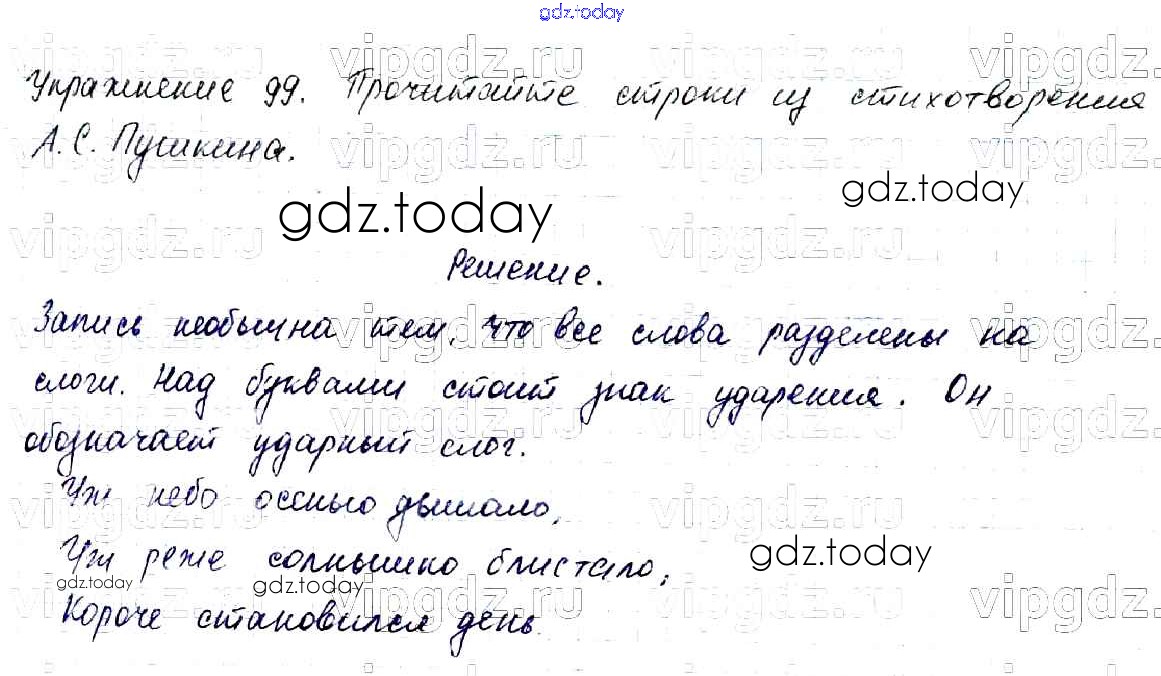 gdz.today
Упражнение 99. Прочитайте строки из стихотворения
А.С. Пушкина.
gdz.today
gdz.today
Решение.
Запись необычна тем, что все слова разделены на
слоги. Над буквами стоит знак ударения. Он
обозначает ударный слог.
Уж небо осенью дышало,
Уж реже солнышко блистало,
gdz.today
gdz.today
gdz.today
Короче становился день.
vipgdz.ru